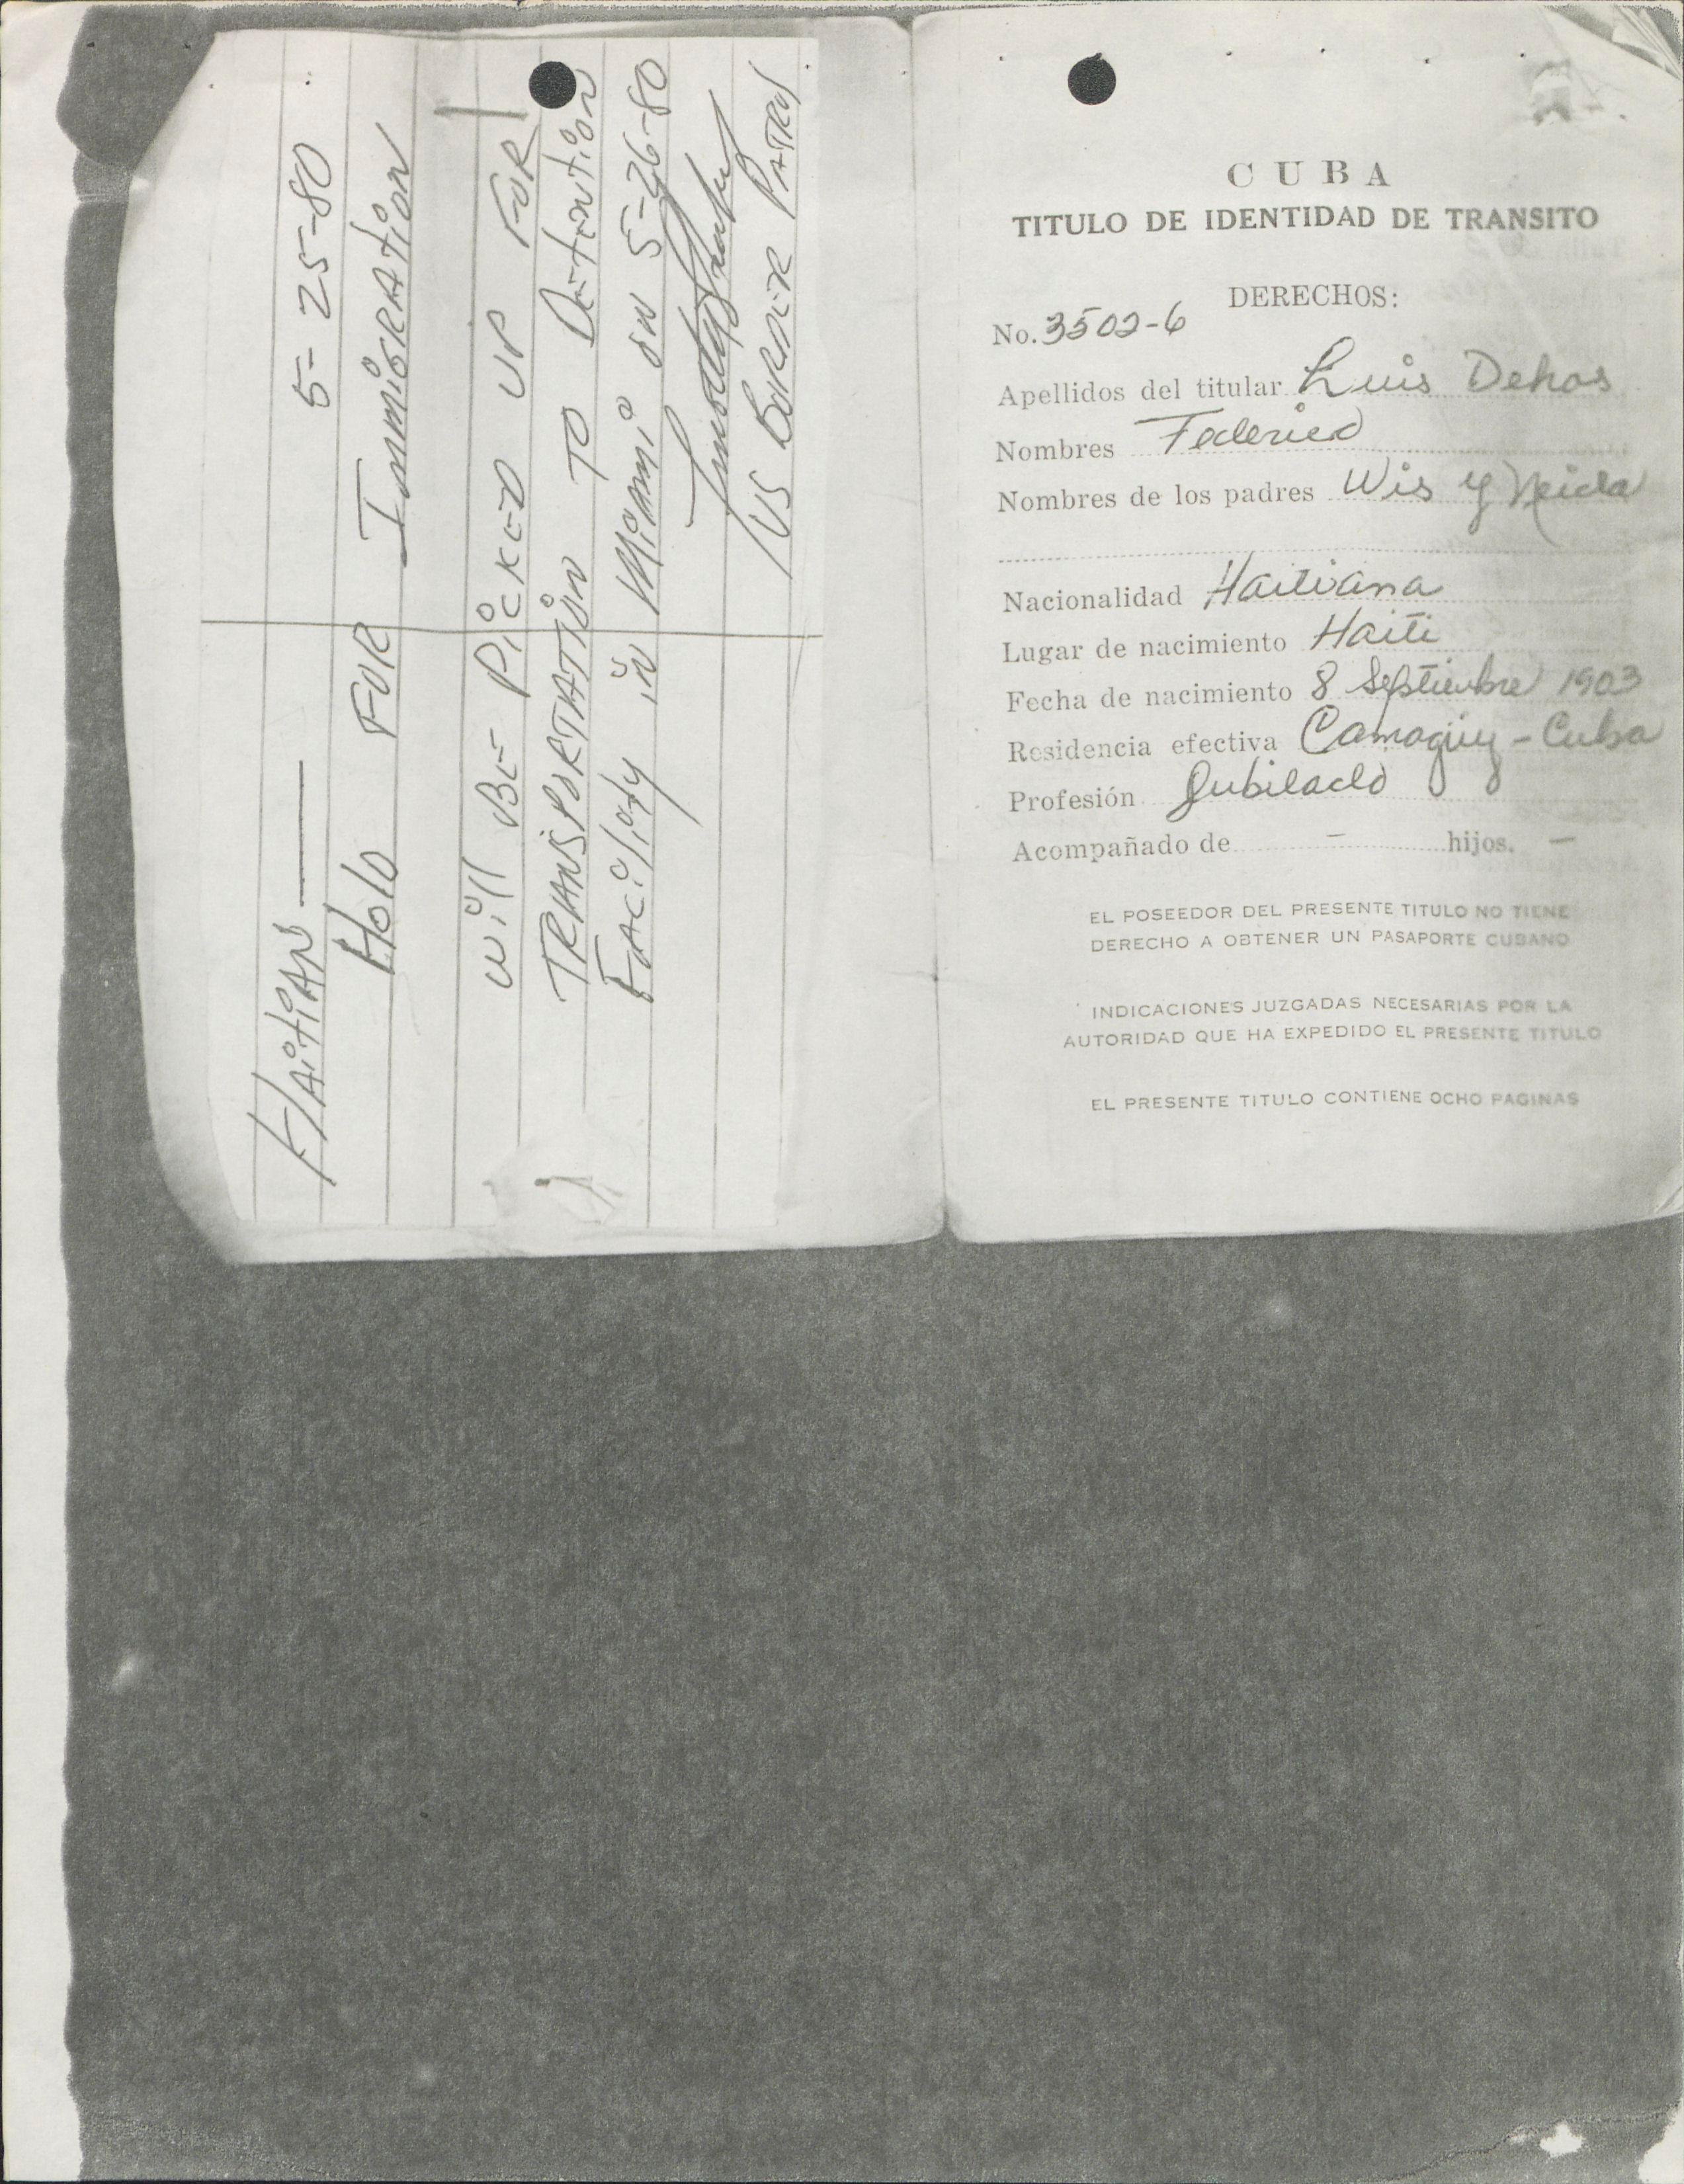 HAitiAN — 5-25-80
Hold FOR ImmiGRAtiON
will BE PickED UP FOR
TRANSPORTATiON TO DEtENtiON
FACility iN Miami ON 5-26-80
US BORDER PATROL
CUBA
TITULO DE IDENTIDAD DE TRANSITO
DERECHOS:
No. 3502-6
Apellidos del titular Luis Dehos
Nombres Federico
Nombres de los padres Wis y Neida
Nacionalidad Haitiana
Lugar de nacimiento Haiti
Fecha de nacimiento 8 Septiembre 1903
Residencia efectiva Camagüey - Cuba
Profesión Jubilado
Acompañado de - hijos. -
EL POSEEDOR DEL PRESENTE TITULO NO TIENE
DERECHO A OBTENER UN PASAPORTE CUBANO
INDICACIONES JUZGADAS NECESARIAS POR LA
AUTORIDAD QUE HA EXPEDIDO EL PRESENTE TITULO
EL PRESENTE TITULO CONTIENE OCHO PAGINAS